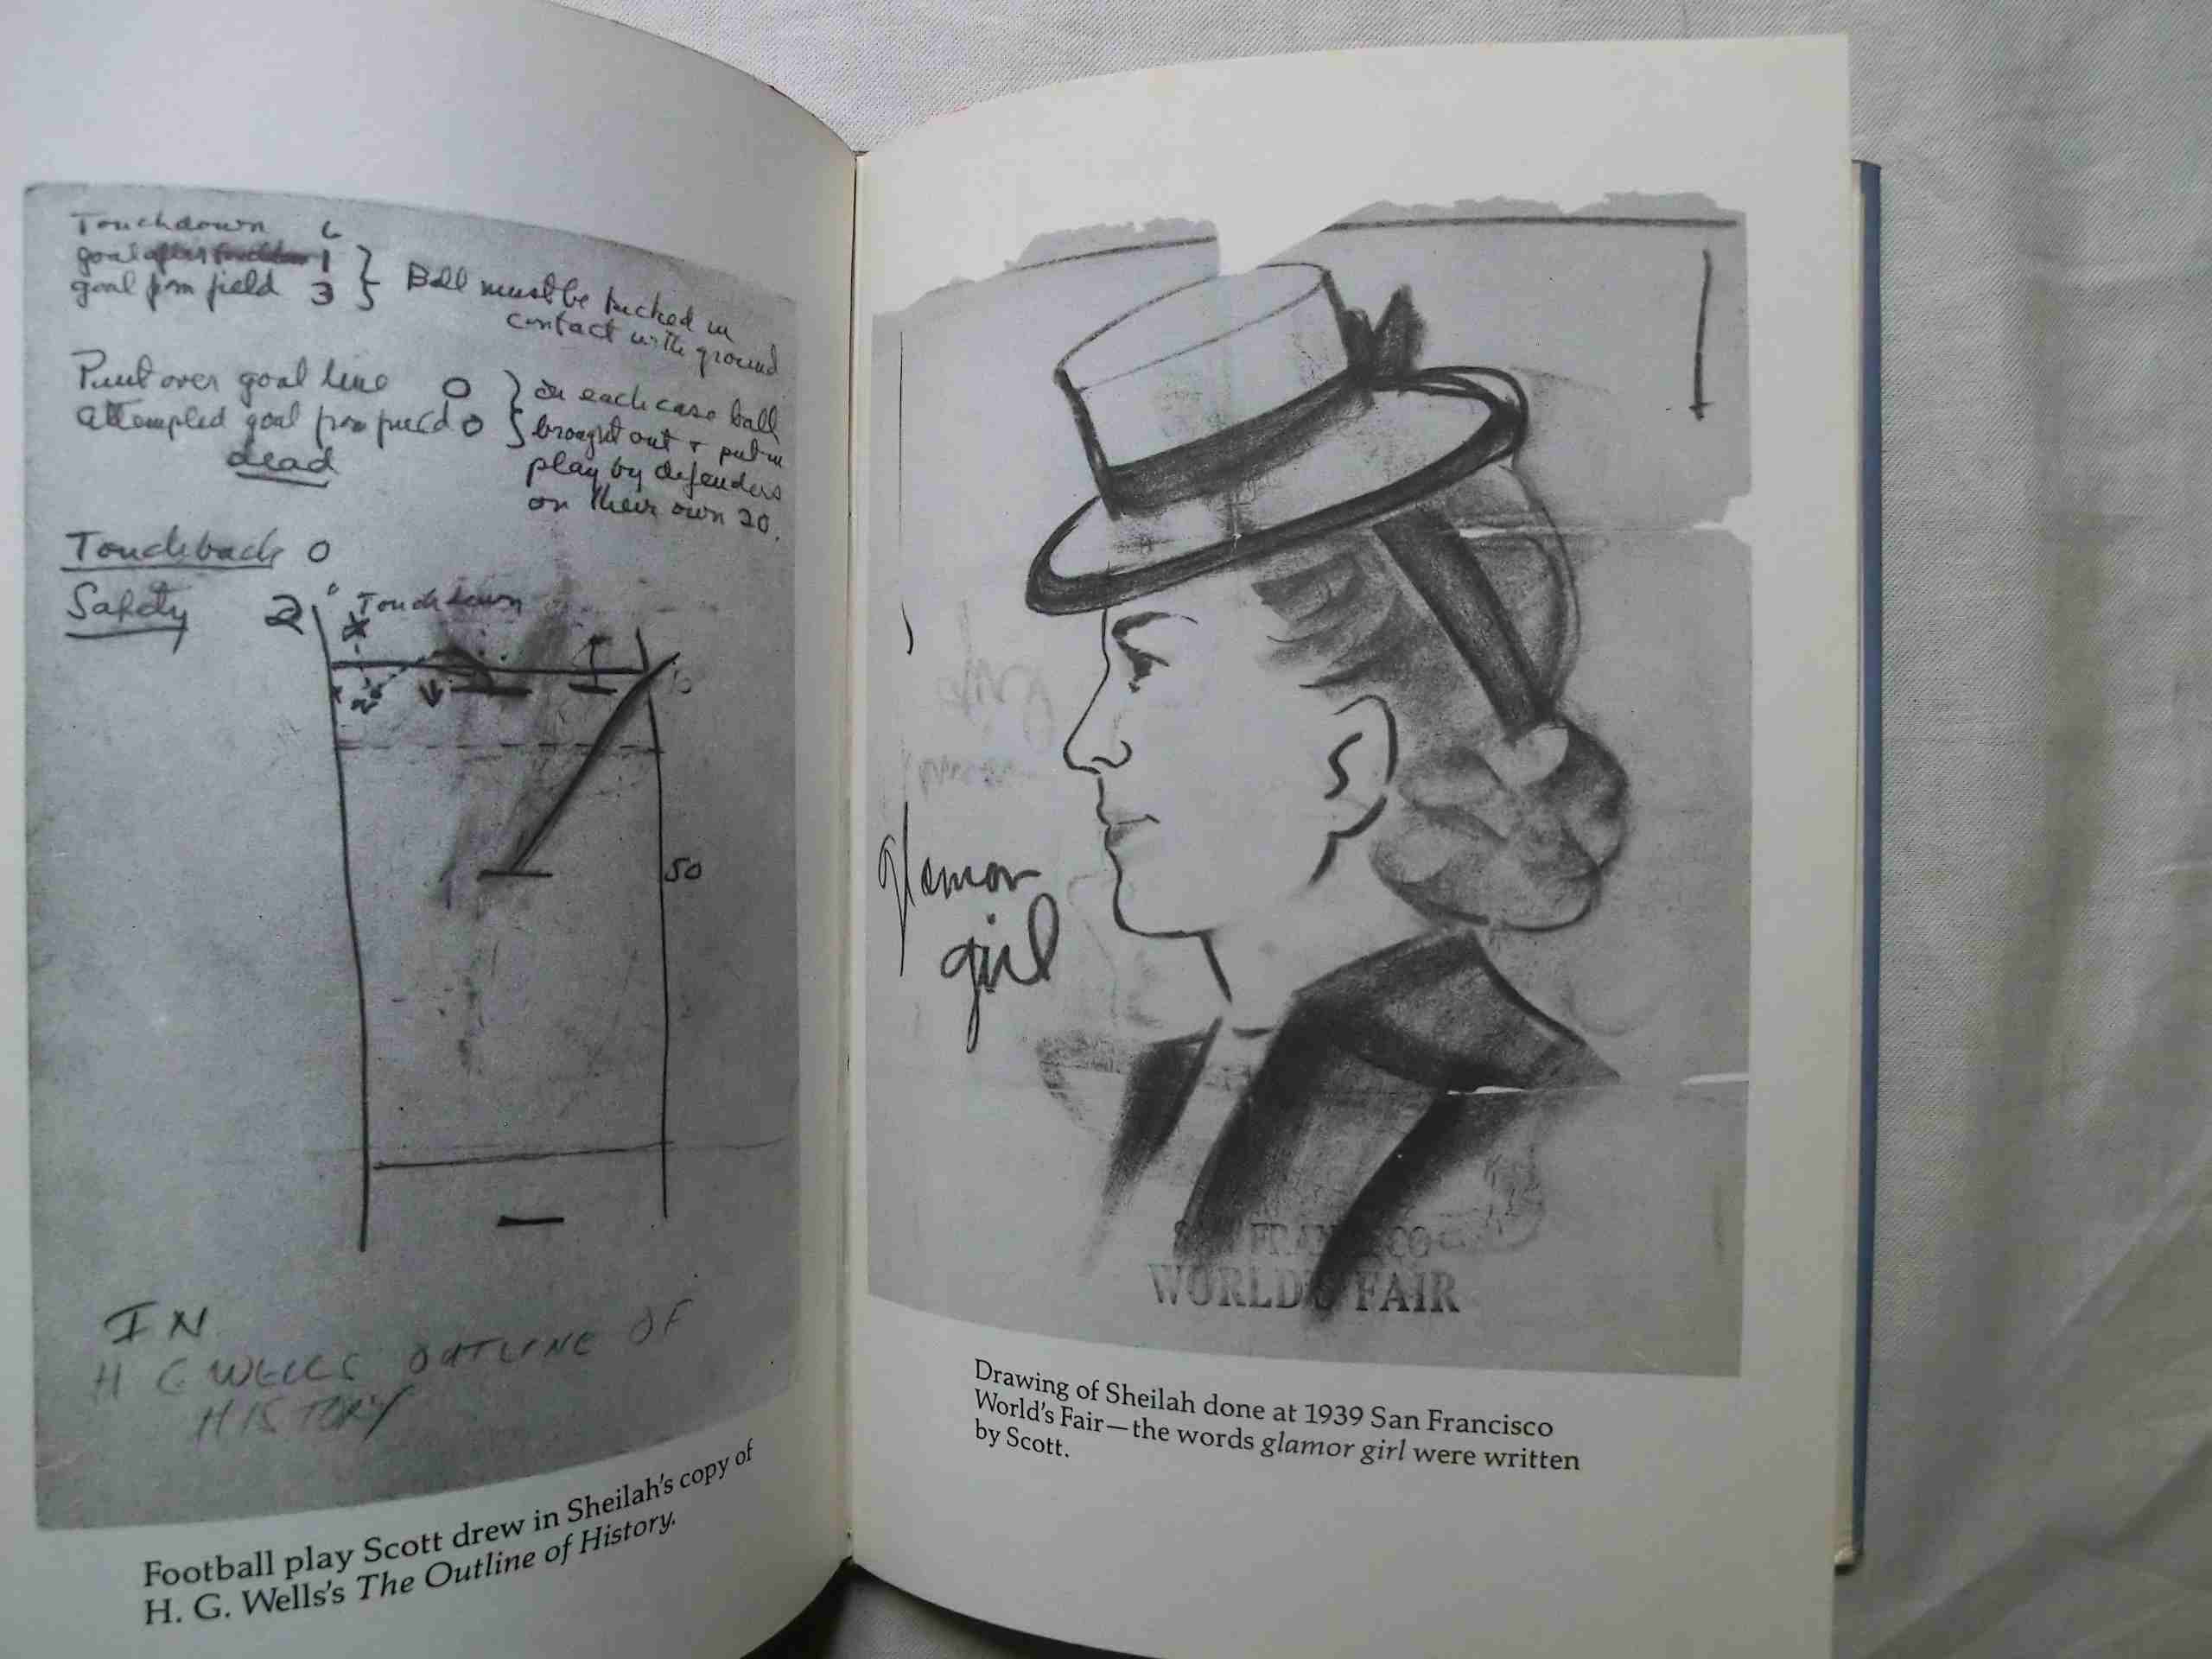 Touchdown 6
goal after touchdown 1
goal from field 3
Ball must be kicked in
contact with ground
Punt over goal line 0
attempted goal from field 0
dead
In each case ball
brought out + put in
play by defenders
on their own 20.
Touchback 0
Safety 2
Touchdown
50
IN
H G WELLS OUTLINE OF
HISTORY
Football play Scott drew in Sheilah's copy of
H. G. Wells's The Outline of History.
glamor
girl
SAN FRANCISCO
WORLD'S FAIR
Drawing of Sheilah done at 1939 San Francisco
World's Fair—the words glamor girl were written
by Scott.